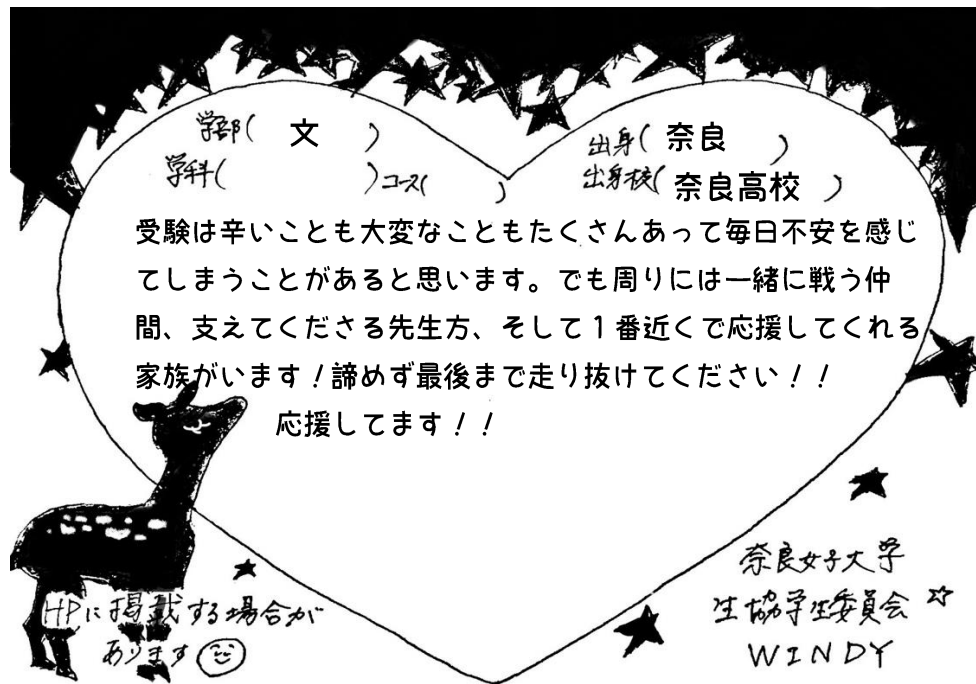 学部( 文 )
学科( )コース( )
出身( 奈良 )
出身校( 奈良高校 )
受験は辛いことも大変なこともたくさんあって毎日不安を感じ
てしまうことがあると思います。でも周りには一緒に戦う仲
間、支えてくださる先生方、そして1番近くで応援してくれる
家族がいます!諦めず最後まで走り抜けてください!!
応援してます!!
HPに掲載する場合が
あります
奈良女子大学
生協学生委員会☆
WINDY